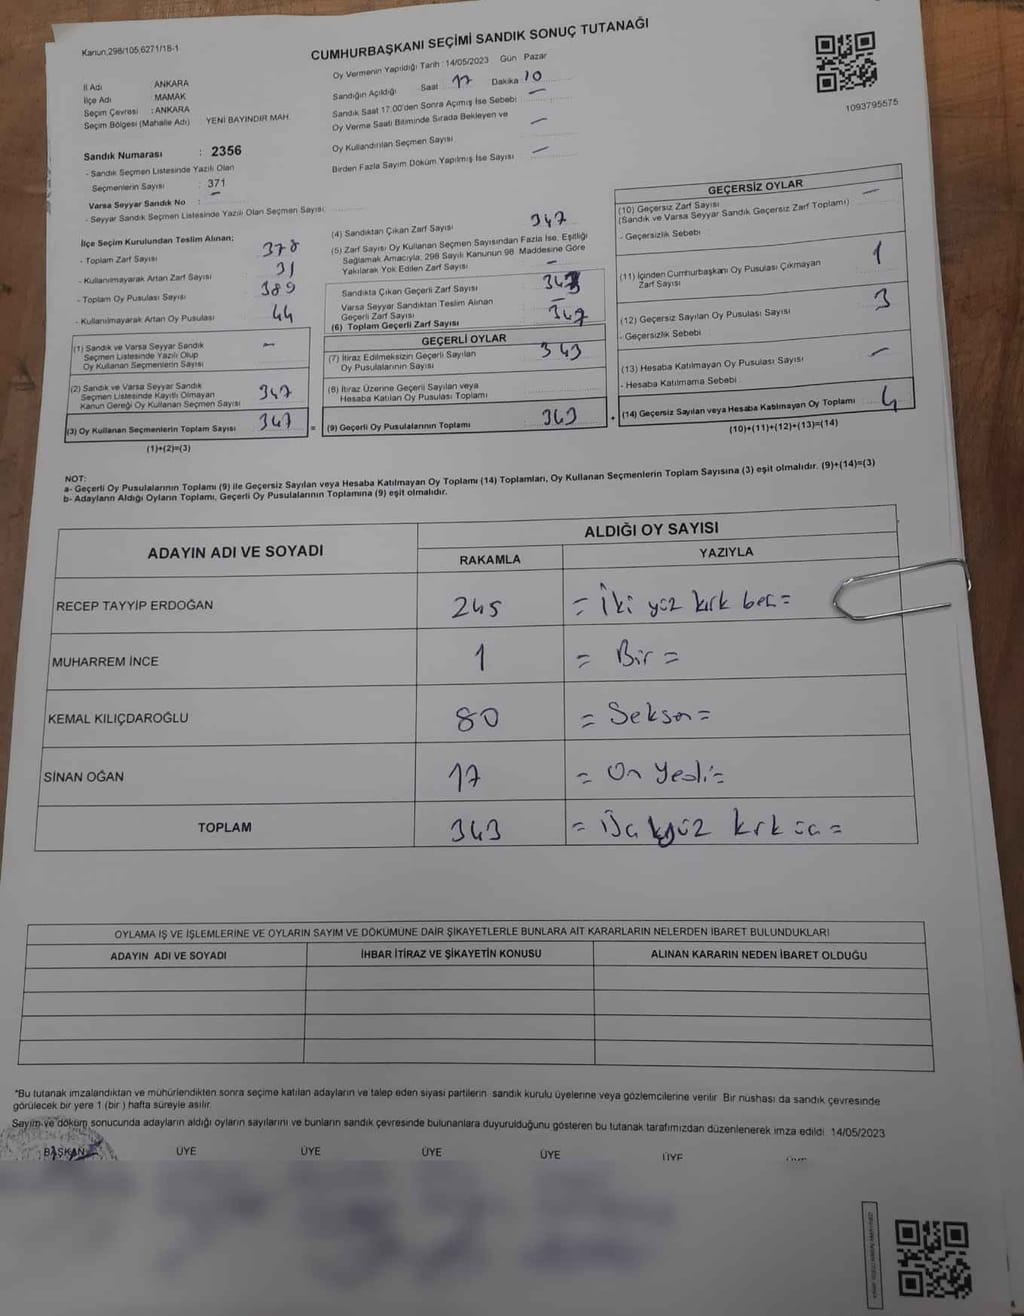 Kanun.298/105;6271/18-1
CUMHURBAŞKANI SEÇİMİ SANDIK SONUÇ TUTANAĞI
Oy Vermenin Yapıldığı Tarih : 14/05/2023 Gün Pazar
İl Adı ANKARA
İlçe Adı MAMAK
Seçim Çevresi : ANKARA
Seçim Bölgesi (Mahalle Adı) YENİ BAYINDIR MAH.
Sandığın Açıldığı Saat 17 Dakika 10
Sandık Saat 17.00'den Sonra Açılmış İse Sebebi —
Oy Verme Saati Bitiminde Sırada Bekleyen ve
Oy Kullandırılan Seçmen Sayısı —
Birden Fazla Sayım Döküm Yapılmış İse Sayısı —
1093795575
Sandık Numarası : 2356
- Sandık Seçmen Listesinde Yazılı Olan
Seçmenlerin Sayısı : 371
Varsa Seyyar Sandık No : —
- Seyyar Sandık Seçmen Listesinde Yazılı Olan Seçmen Sayısı:
İlçe Seçim Kurulundan Teslim Alınan;
- Toplam Zarf Sayısı 378
- Kullanılmayarak Artan Zarf Sayısı 31
- Toplam Oy Pusulası Sayısı 389
- Kullanılmayarak Artan Oy Pusulası 44
(1) Sandık ve Varsa Seyyar Sandık
Seçmen Listesinde Yazılı Olup
Oy Kullanan Seçmenlerin Sayısı —
(2) Sandık ve Varsa Seyyar Sandık
Seçmen Listesinde Kayıtlı Olmayan
Kanun Gereği Oy Kullanan Seçmen Sayısı 347
(3) Oy Kullanan Seçmenlerin Toplam Sayısı 347 =
(1)+(2)=(3)
(4) Sandıktan Çıkan Zarf Sayısı 347
(5) Zarf Sayısı Oy Kullanan Seçmen Sayısından Fazla İse, Eşitliği
Sağlamak Amacıyla, 298 Sayılı Kanunun 98. Maddesine Göre
Yakılarak Yok Edilen Zarf Sayısı —
Sandıkta Çıkan Geçerli Zarf Sayısı
Varsa Seyyar Sandıktan Teslim Alınan
Geçerli Zarf Sayısı —
(6) Toplam Geçerli Zarf Sayısı 347
GEÇERLİ OYLAR
(7) İtiraz Edilmeksizin Geçerli Sayılan
Oy Pusulalarının Sayısı 343
(8) İtiraz Üzerine Geçerli Sayılan veya
Hesaba Katılan Oy Pusulası Toplamı
(9) Geçerli Oy Pusulalarının Toplamı 343 +
GEÇERSİZ OYLAR
(10) Geçersiz Zarf Sayısı
(Sandık ve Varsa Seyyar Sandık Geçersiz Zarf Toplamı) —
- Geçersizlik Sebebi :
(11) İçinden Cumhurbaşkanı Oy Pusulası Çıkmayan
Zarf Sayısı 1
(12) Geçersiz Sayılan Oy Pusulası Sayısı 3
- Geçersizlik Sebebi :
(13) Hesaba Katılmayan Oy Pusulası Sayısı —
- Hesaba Katılmama Sebebi :
(14) Geçersiz Sayılan veya Hesaba Katılmayan Oy Toplamı 4
(10)+(11)+(12)+(13)=(14)
NOT:
a- Geçerli Oy Pusulalarının Toplamı (9) ile Geçersiz Sayılan veya Hesaba Katılmayan Oy Toplamı (14) Toplamları, Oy Kullanan Seçmenlerin Toplam Sayısına (3) eşit olmalıdır. (9)+(14)=(3)
b- Adayların Aldığı Oyların Toplamı, Geçerli Oy Pusulalarının Toplamına (9) eşit olmalıdır.
ADAYIN ADI VE SOYADI ALDIĞI OY SAYISI
RAKAMLA YAZIYLA
RECEP TAYYİP ERDOĞAN 245 = İki yüz kırk beş =
MUHARREM İNCE 1 = Bir =
KEMAL KILIÇDAROĞLU 80 = Seksen =
SİNAN OĞAN 17 = On Yedi =
TOPLAM 343 = Üç yüz kırk üç =
OYLAMA İŞ VE İŞLEMLERİNE VE OYLARIN SAYIM VE DÖKÜMÜNE DAİR ŞİKAYETLERLE BUNLARA AİT KARARLARIN NELERDEN İBARET BULUNDUKLARI
ADAYIN ADI VE SOYADI İHBAR İTİRAZ VE ŞİKAYETİN KONUSU ALINAN KARARIN NEDEN İBARET OLDUĞU
*Bu tutanak imzalandıktan ve mühürlendikten sonra seçime katılan adayların ve talep eden siyasi partilerin sandık kurulu üyelerine veya gözlemcilerine verilir. Bir nüshası da sandık çevresinde
görülecek bir yere 1 (bir ) hafta süreyle asılır.
Sayım ve döküm sonucunda adayların aldığı oyların sayılarını ve bunların sandık çevresinde bulunanlara duyurulduğunu gösteren bu tutanak tarafımızdan düzenlenerek imza edildi. 14/05/2023
BAŞKAN ÜYE ÜYE ÜYE ÜYE ÜYE